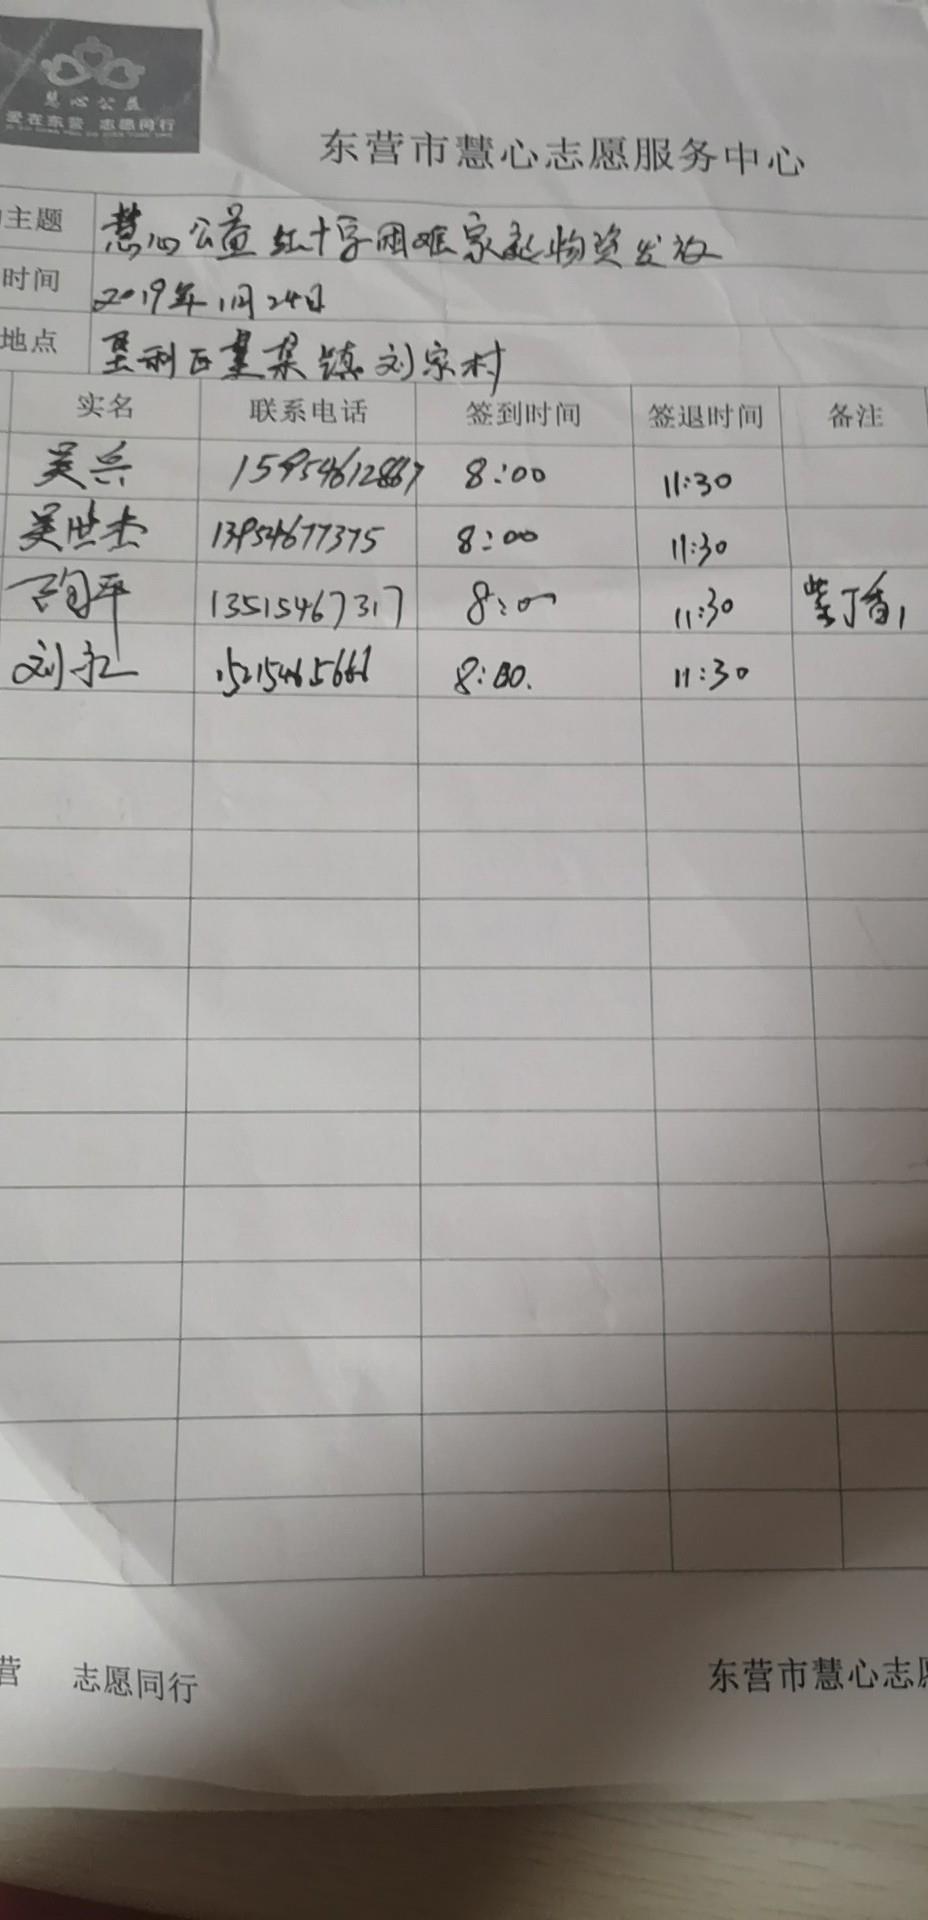 慧心公益
爱在东营 志愿同行
东营市慧心志愿服务中心
主题 慧心公益红十字困难家庭物资发放
时间 2019年1月24日
地点 垦利区董集镇刘家村
实名 联系电话 签到时间 签退时间 备注
吴兵 15954612887 8:00 11:30
吴世杰 13954677375 8:00 11:30
13515467317 8:00 11:30 紫丁香
刘仁 15215465661 8:00. 11:30
营 志愿同行 东营市慧心志愿